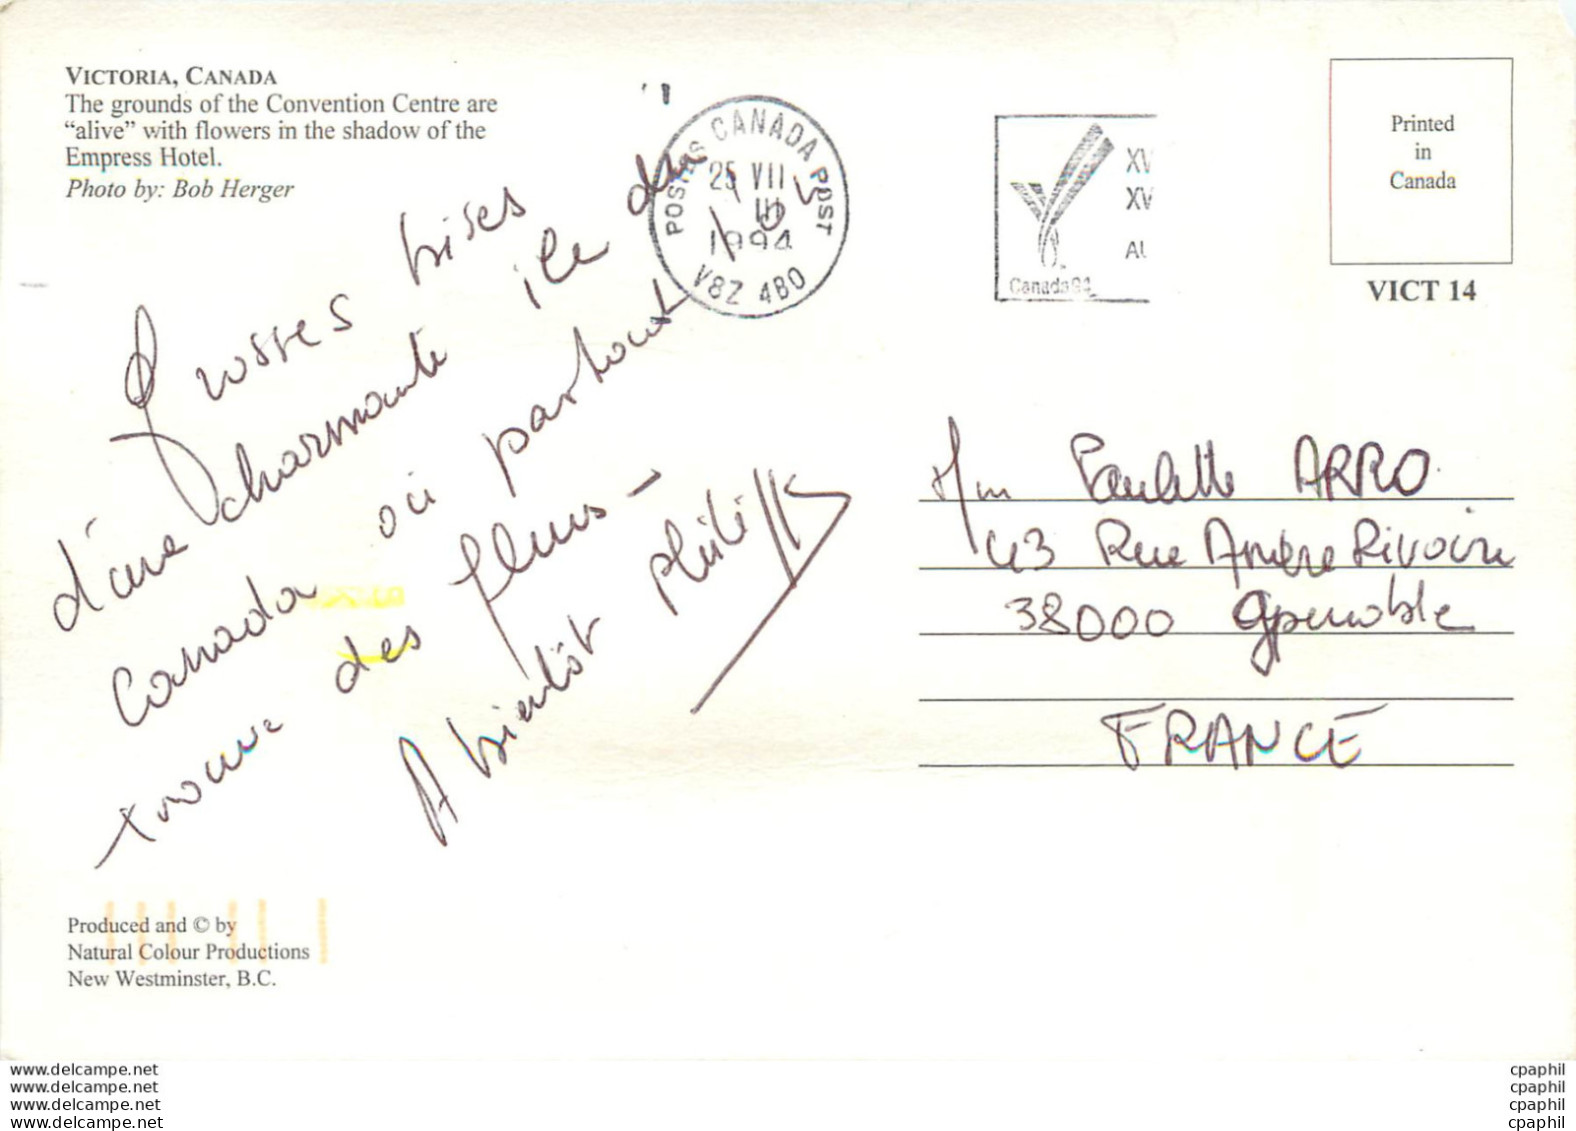 VICTORIA, CANADA
The grounds of the Convention Centre are
“alive” with flowers in the shadow of the
Empress Hotel.
Photo by: Bob Herger
Grosses bises
d'une charmante ile du
Canada où partout l'on
trouve des fleurs -
A bientôt Philipp
POSTES CANADA POST
25 VII
III
1994
V8Z 4B0
XV
XV
AU
Canada94
Printed
in
Canada
VICT 14
Mm Paulette ARRO
43 Rue Ampère Rivoire
38000 Grenoble
FRANCE
Produced and © by
Natural Colour Productions
New Westminster, B.C.
www.delcampe.net
www.delcampe.net
www.delcampe.net
www.delcampe.net
cpaphil
cpaphil
cpaphil
cpaphil